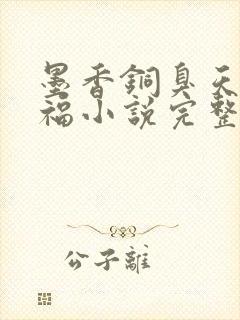 墨香銅臭天
福小說完整
公子離